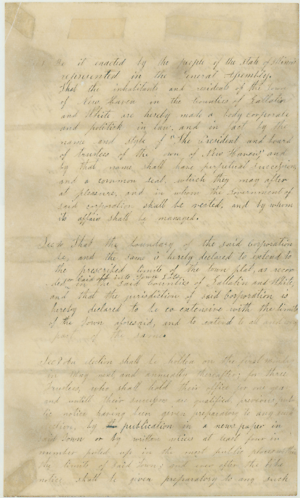 Be it enacted by the people of the State of Illinois
represented in the General Assembly.
That the inhabitants and residents of the Town
of New Haven in the Counties of Gallatin
and White are hereby made a body corporate
and politick in law and in fact by the
name and style of "The President and board
of trustees of the town of New Haven" and
by that name shall have perpetual succession
and a common seal, which they may alter
at pleasure, and in whom the government of
said corporation shall be vested, and by whom
its affairs shall be managed.
Sec 2 That the boundary of the said Corporation
be, and the same is hereby declared to extend to
the prescribed limits of the town plat, as recor
ded in the said Counties of Gallatin and White,
and that the jurisdiction of said Corporation is
hereby declared to be co extensive with the limits
of the town aforesaid, and to extend to
part of the same.
Sec 3 An election shall be held on the first monday
in May next and annually thereafter, for three
trustees, who shall hold their office for one year
and until their successors are qualified
notice having been given preparatory to any such
election, by publication in a news paper in
said town or by written notices at least four in
number posted up in the most public places
the limits of said town; and ever after the like
notice shall be given preparatory to any such